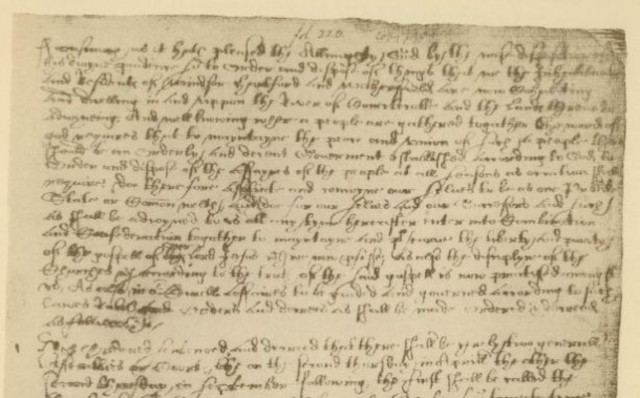 fol. 220.
as it hath pleased the Allmighty God by the wise
his diuyne pruidence so to Order and dispose of things that we the Inhabitants
and Residents of Windsor Harteford and Wethersfield are now Cohabiting
and dwelling in and vppon the River of Conectecotte and the Lands thereunto
adioyneing And well knowing where a people are gathered togather the word of
God requires that to mayntayne the peace and vnion of such a people there
should be an Orderly and decent Gouerment established according to God, to
Order and dispose of the affayres of the people at all seasons as occation shall
require; doe therefore assotiate and conioyne our selues to be as one Publike
State or Comonwelth; and doe for our selues and our Successors and such
as shall be adioyned to vs att any tyme hereafter enter into Combination
and Confederation togather to mayntayne and preserue the liberty and purity
of the gospell of our Lord Jesus we now professe as also the disciplyne of the
Churches according to the truth of the said gospell is now practised amongst
vs. As also in our Ciuell affaires to be guided and gouerned according to such
Lawes Rules Orders and decrees as shall be made ordered & decreed
as followeth
Ordered sentenced and decreed that there shall be yerely two generall
Assemblies or Courts, the on the second thursday in Aprill, the other the
second thursday in September following, the first shall be called the